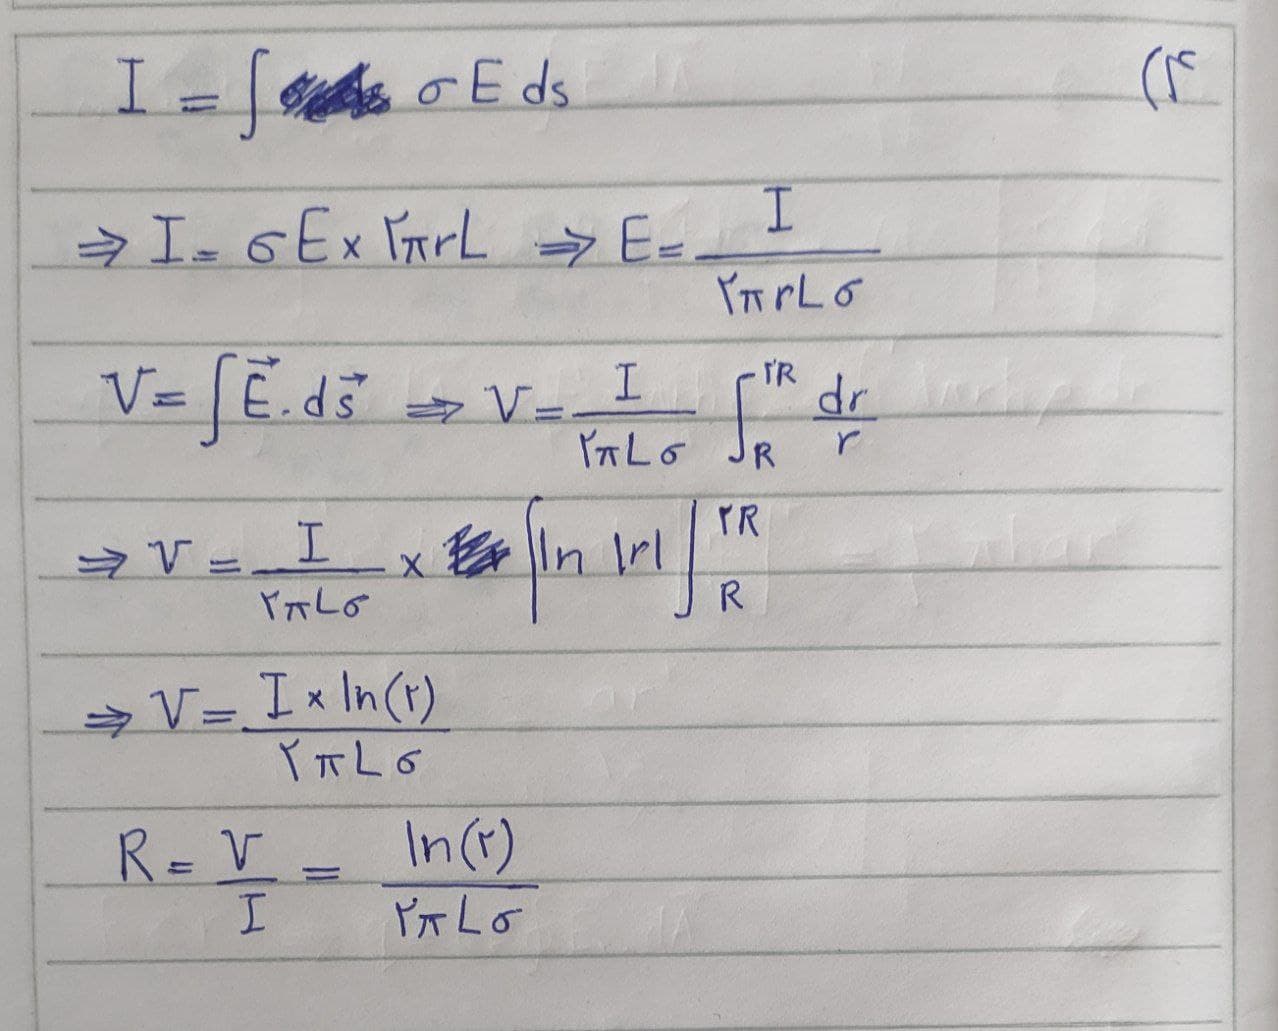 ۴)
I = ∫ σ E ds
⇒ I = σE × ۲πrL ⇒ E = I / ۲πrLσ
V = ∫ E⃗ . ds⃗ ⇒ V = I / ۲πLσ ∫_R^۲R dr / r
⇒ V = I / ۲πLσ × [ln |r|]_R^۲R
⇒ V = I × ln(۲) / ۲πLσ
R = V / I = ln(۲) / ۲πLσ